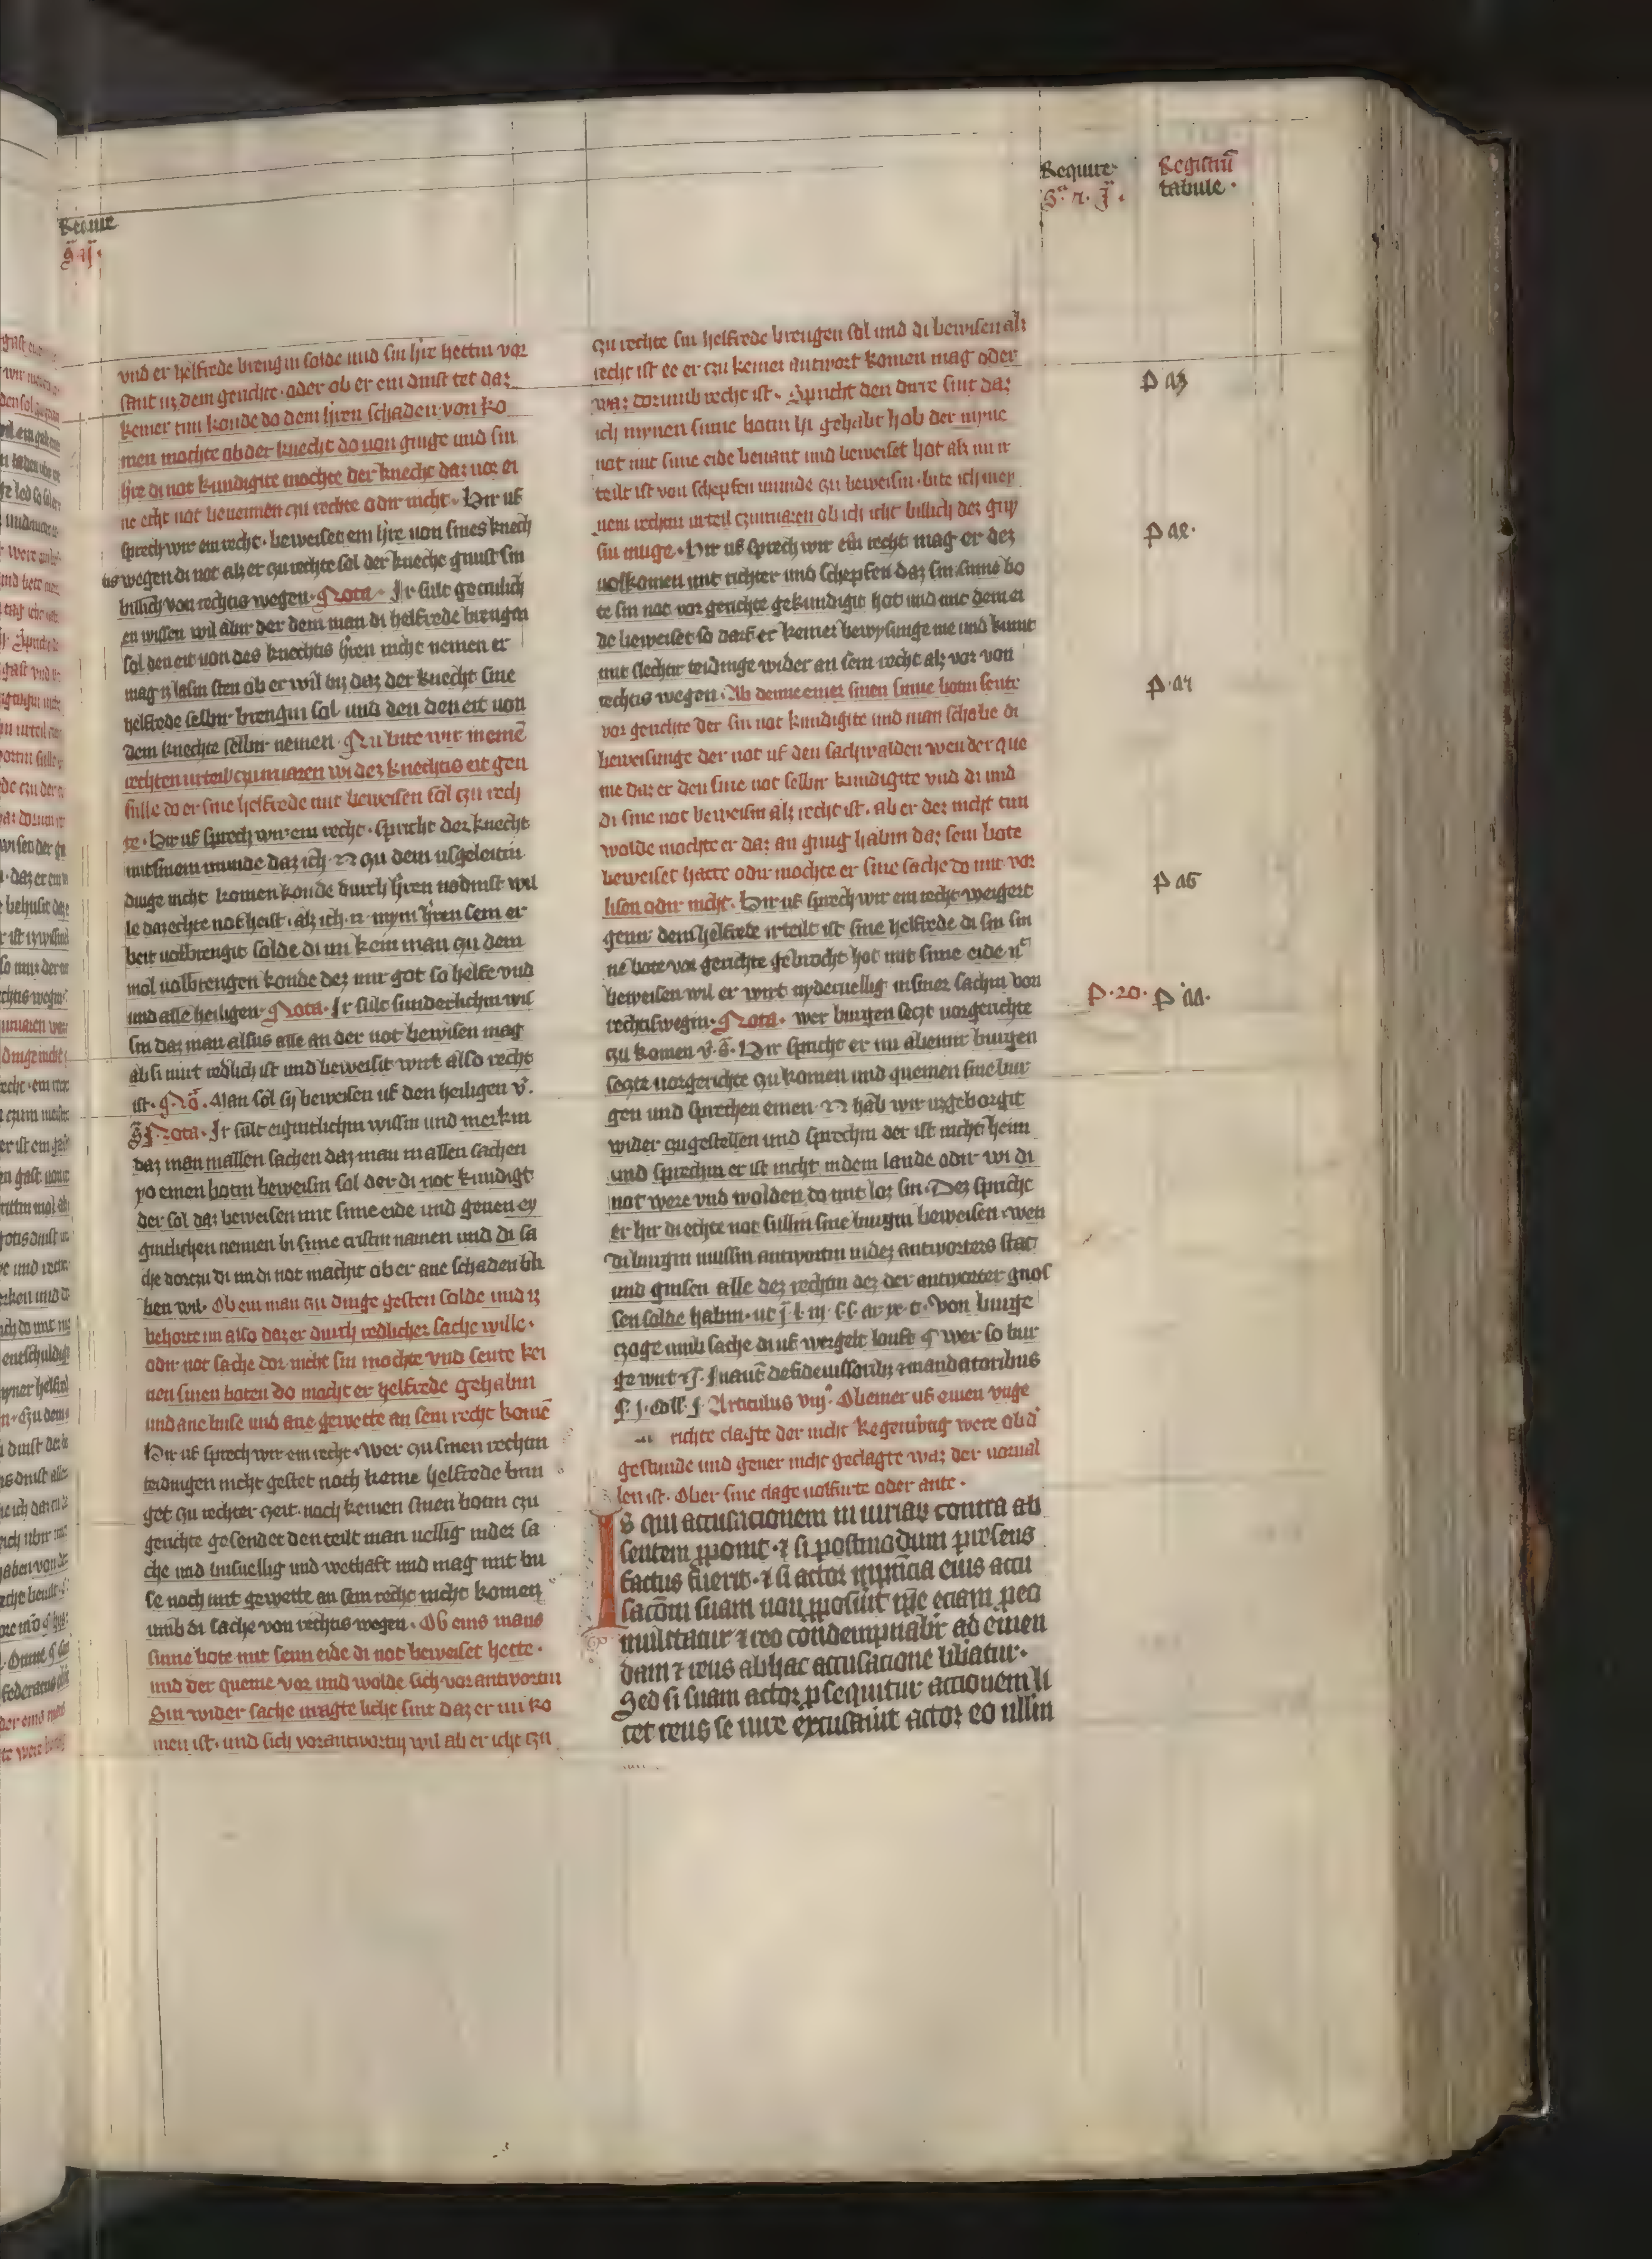 Require
Registrum
tabule
vnd er helfrede brengin solde und sin hre hettin vor
sant uz dem gerichte · oder ob er ein dinst tet daz
keiner tun konde do dem hren schaden von ko
men mochte ob der knecht do von ginge und sin
hre di not kundigite mochte der knecht daz vor ei
ne echt not benennen czu rechte odir nicht · Hir uf
sprech wir ein recht · beweiset ein hre von sines knech
tis wegen di not alz er zu rechte sol der knecht genust sin
billich von rechtis wegen · Nota · Ir sult getrulich
en wissen wil abir der dem man di helfrede brengin
sol den eit von des knechtis hren nicht nemen er
mag iz lasin sten ob er wil biz daz der knecht sine
helfrede selbir brengin sol und den den eit von
dem knechte selbir nemen · Nu bite wir ineme
rechten urteil czuirvaren wi dez knechtis eit gen
sulle do er sine helfrede mit beweisen sol czu rech
te · Hir uf sprech wir ein recht · spricht der knecht
mit sinem munde daz ich · N · zu dem usgeleitin
dinge nicht komen konde durch hren nodinst wil
le daz echte not heist · alz ich · n · mym hren sein er
beit volbrengit solde di im kein man zu dem
mol volbrengen konde dez mir got so helfe vnd
und alle heiligen · Nota · Ir sult sunderlichin wis
sin daz man alsus alle an der not bewisen mag
ab si mut redlich ist und beweisit wirt also recht
ist · Man sol sy beweisen uf den heiligen
Nota · Ir sult eigintlichin wissin und merkin
daz man in allen sachen daz man in allen sachen
yo einen botin beweisin sol der di not kundigt
der sol daz beweisen mit sime eide und genen ey
gintlichen nennen bi sime cristin namen und di sa
che dorczu di im di not machit ob er ane schaden bli
ben wil · Ob ein man zu dinge gesten solde und iz
behorte im also daz er durch redlicher sache wille ·
odir not sache dor nicht sin mochte vnd sente kei
nen sinen boten do mocht er helfrede gehabin
und ane buse und ane gewette an sein recht kome
Hir uf sprech wir ein recht · Wer zu sinen rechtin
teidingen nicht gestet noch keine helfrede brin
get zu rechter zeit · noch keinen sinen botin czu
gerichte gesendet den teilt man vellig in der sa
che und busvellig und wethaft und mag mit bu
se noch mit gewette an sein recht nicht komen
umb di sache von rechtis wegen · Ob eins mans
sinne bote mit sein eide di not beweiset hette ·
und der queme vor und wolde sich vorantwortin
Sin wider sache vragte licht sint daz er nu ko
men ist · und sich vorantwortin wil ab er icht czu
zu rechte sin helfrede brengen sol und di bewisen alz
recht ist ee er czu keiner antwort komen mag oder
waz dorumb recht ist · Spricht den dirre sint daz
ich mynen sinne botin hi gehabt hob der myne
not mit sime eide benant und beweiset hot alz im ir
teilt ist von schepfen munde zu beweisin · bite ich mey
nem rechtin urteil czuirvaren ob ich icht billich dez gny
sin muge · Hir uf sprech wir ein recht mag er dez
volkomen mit richter und schepfen daz sin sinne bo
te sin not vor gerichte gekundigit hot und mit dem ei
de beweiset so darf er keiner bewysunge me und kumt
mit slechtir teidinge wider an sein recht alz vor von
rechtis wegen · Ab denne einer sinen sinne botin sente
vor gerichte der sin not kundigite und man schabe di
beweisunge der not uf den sachwalden wen der que
me daz er den sine not selbir kundigite vnd di und
di sine not beweisin alz recht ist · ab er dez nicht tun
wolde mochte er daz an ging habin daz sein bote
beweiset hatte odir mochte er sine sache do mit vor
lisen odir nicht · Hir uf sprech wir ein recht weigert
genir dem helfrede irteilt ist sine helfrede di sin sin
ne bote vor gerichte gebrocht hot mit sime eide
beweisen wil er wirt nydervellig in siner sachin von
rechtis wegin · Nota · wer burgen seczt vorgerichte
zu komen · Hir spricht er nu ab einir burgen
seczte vorgerichte zu komen und quemen sine bur
gen und sprechen einen · N · hab wir uzgeborgit
wider zugestellen und sprechin der ist nicht heim
und sprechin er ist nicht in dem lande odir wi di
not were vnd wolden do mit loz sin · Dez spricht
er hir di echte not sullin sine burgin beweisen · wen
di burgin mussin antwortin in dez antworters stat
und gnisen alle dez rechtin dez der antworter gnos
sen solde habin ·
von burge
czoge umb sache di uf wergelt louft · wer so bur
ge wirt
de fideiussoribus et mandatoribus
Articulus viij° Ob einer uf einen vnge
richte clagte der nicht kegenwirtig were ob d'
gestunde und gener nicht geclagte waz der vorval
len ist · Ober sine clage volfurte oder ante ·
Is qui accusacionem iniuriarum contra ab
sentem proponit · et si postmodum presens
factus fuerit · et si actor in presencia eius accu
sacionem suam non proposuit
mulctatur et reo condempnabitur ad emen
dam et reus ab hac accusacione liberatur ·
Sed si suam actor persequitur actionem li
cet reus se iure excusauit actor eo ullim
P · 20 ·